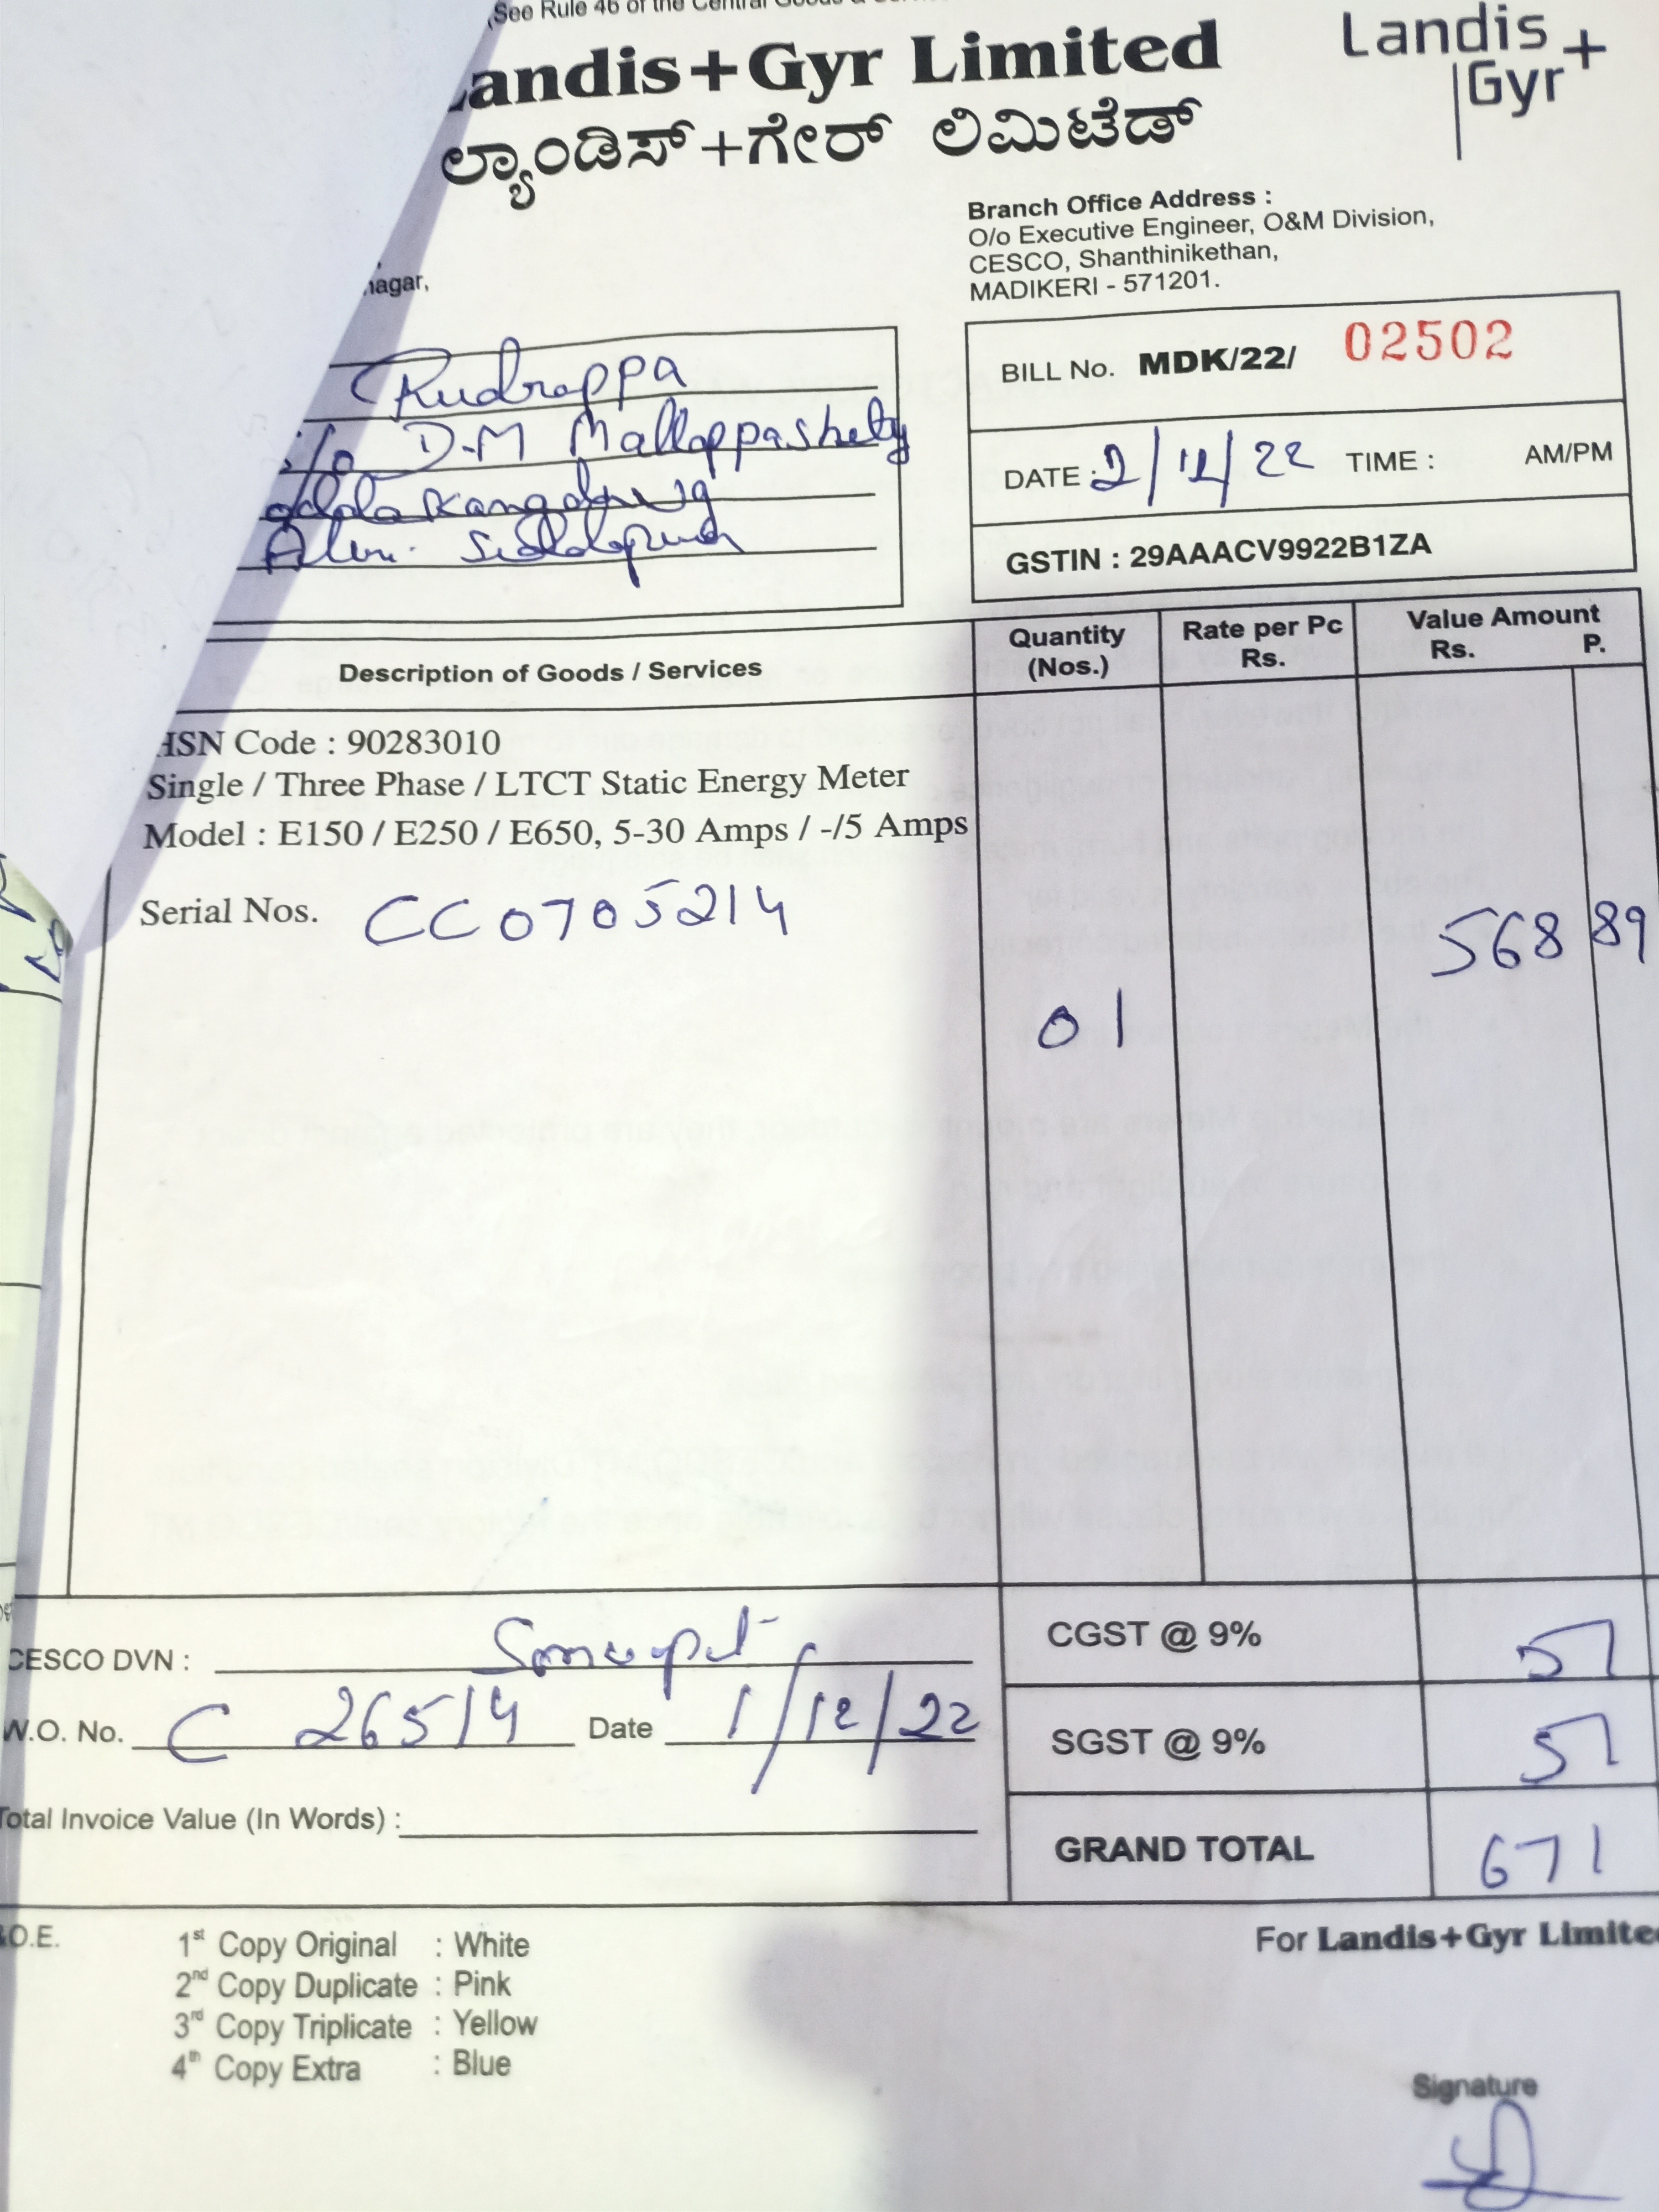 (See Rule 46 of the Central Goods &
Landis+Gyr Limited
Landis
Gyr+
ಲ್ಯಾಂಡಿಸ್+ಗೇರ್ ಲಿಮಿಟೆಡ್
nagar,
Branch Office Address :
O/o Executive Engineer, O&M Division,
CESCO, Shanthinikethan,
MADIKERI - 571201.
Rudrappa
D.M Mallappashetty
BILL No. MDK/22/ 02502
DATE : 2/12/22 TIME : AM/PM
GSTIN : 29AAACV9922B1ZA
Description of Goods / Services
Quantity (Nos.)
Rate per Pc Rs.
Value Amount
Rs. P.
HSN Code : 90283010
Single / Three Phase / LTCT Static Energy Meter
Model : E150 / E250 / E650, 5-30 Amps / -/5 Amps
Serial Nos. CC0705214
568 89
01
CESCO DVN :
W.O. No. C 26514 Date 1/12/22
Total Invoice Value (In Words) :
CGST @ 9% 51
SGST @ 9% 51
GRAND TOTAL 671
&O.E.
1st Copy Original : White
2nd Copy Duplicate : Pink
3rd Copy Triplicate : Yellow
4th Copy Extra : Blue
For Landis+Gyr Limited
Signature